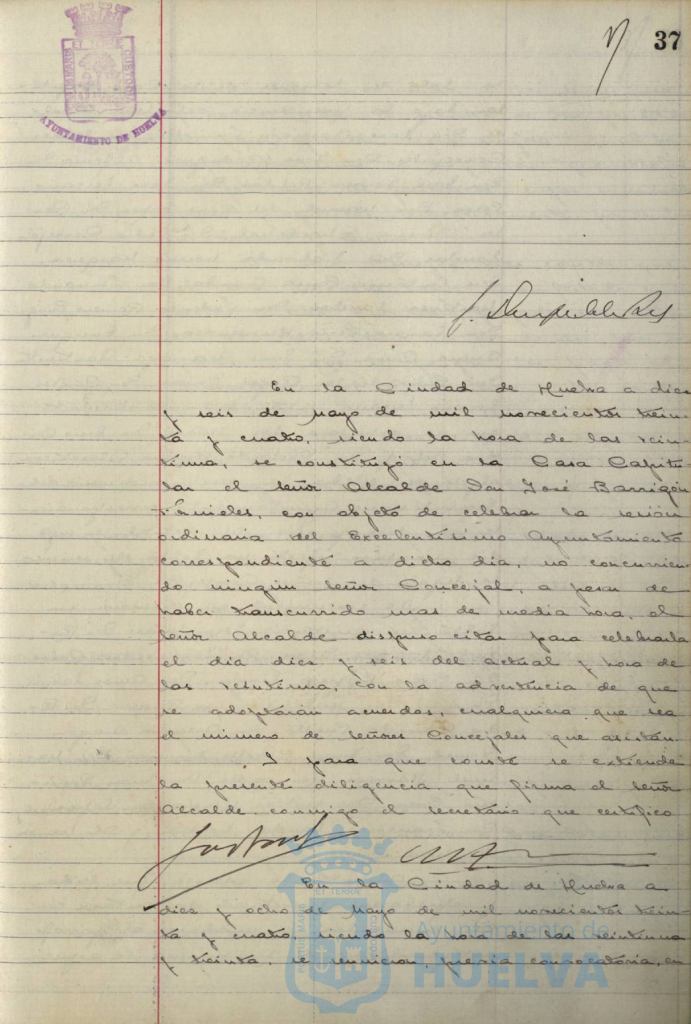 37
PORTUS MARIS ET TERRAE CUSTODIA
AYUNTAMIENTO DE HUELVA
En la Ciudad de Huelva a diez
y seis de Mayo de mil novecientos trein-
ta y cuatro, siendo la hora de las vein-
tiuna, se constituyó en la Casa Capitu-
lar el señor Alcalde Don José Barrigón
Fornieles, con objeto de celebrar la sesión
ordinaria del Excelentísimo Ayuntamiento
correspondiente a dicho dia, no concurrien-
do ningún señor Concejal, a pesar de
haber transcurrido mas de media hora, el
señor Alcalde dispuso citar para celebrarla
el dia diez y seis del actual y hora de
las veintiuna, con la advertencia de que
se adoptarán acuerdos, cualquiera que sea
el número de señores Concejales que asistan.
Y para que conste se extiende
la presente diligencia que firma el señor
Alcalde conmigo el secretario que certifico
En la Ciudad de Huelva a
diez y ocho de Mayo de mil novecientos trein-
ta y cuatro, siendo la hora de las veintiuna
y treinta, se reunieron, previa convocatoria, en
Ayuntamiento de
HUELVA